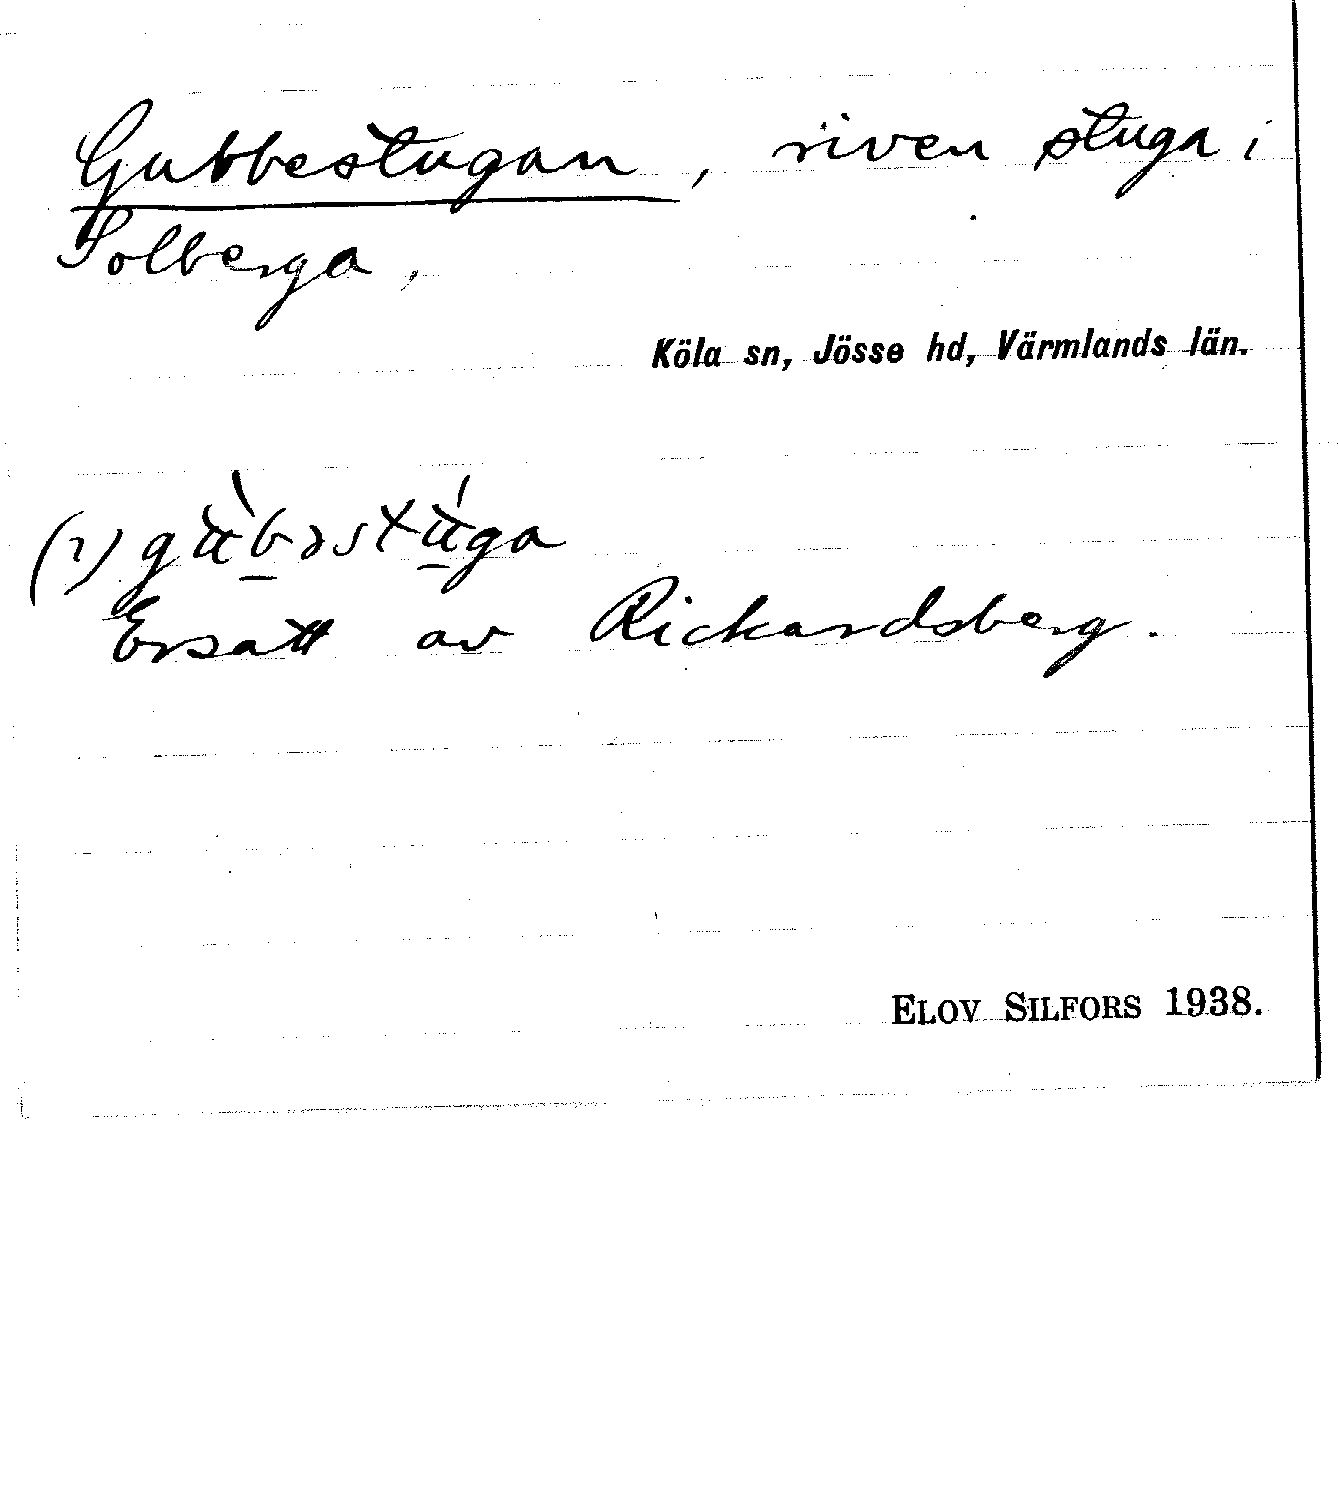 Gubbestugan, riven stuga i
Solberga,
Köla sn, Jösse hd, Värmlands län.
(1) gu̇̀b̲əstu̲̇́ga
Ersatt av Rickardsberg.
ELOV SILFORS 1938.